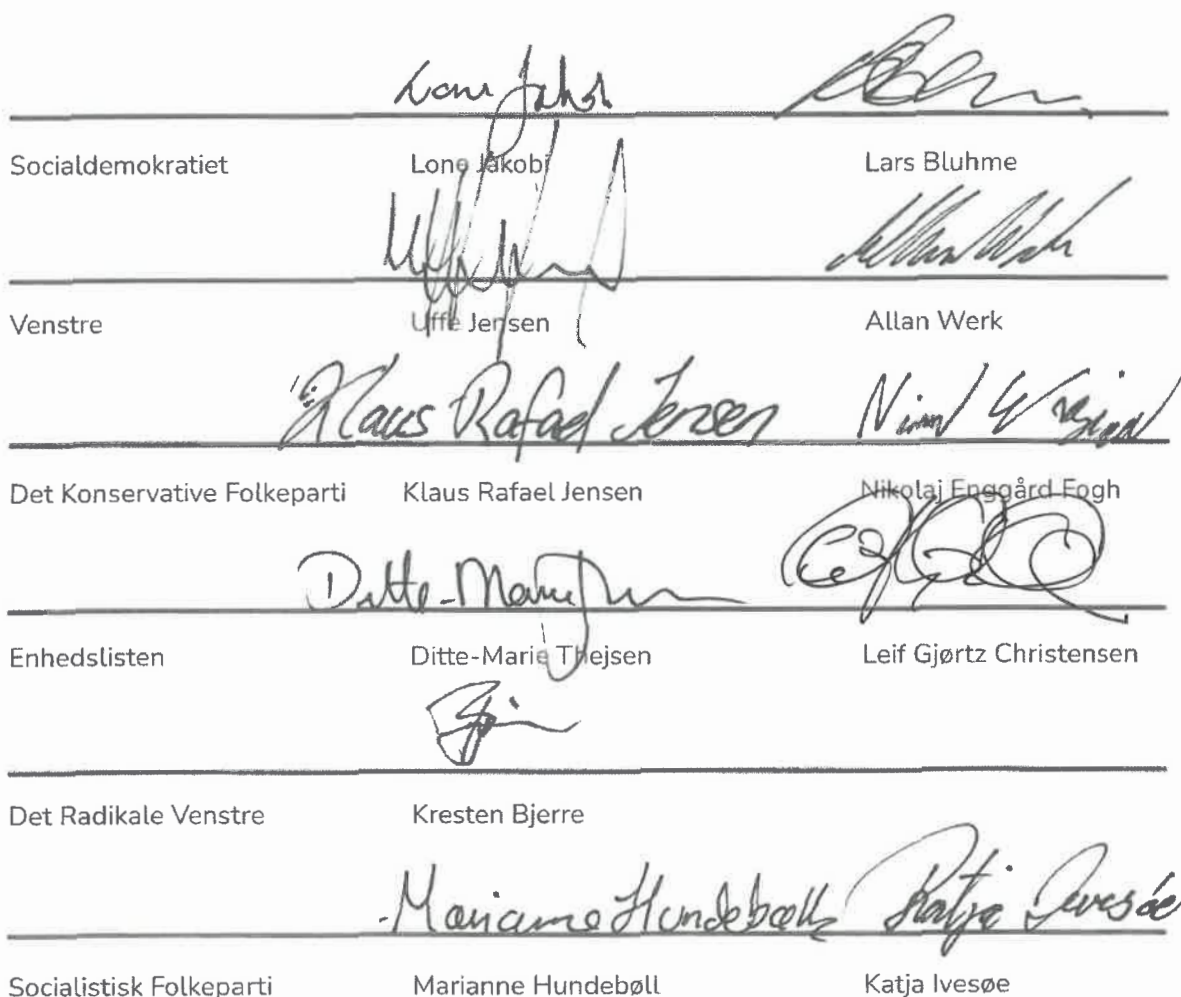 Lone Jakob
Socialdemokratiet Lone Jakobi Lars Bluhme
Venstre Uffe Jensen Allan Werk
Klaus Rafael Jensen
Det Konservative Folkeparti Klaus Rafael Jensen Nikolaj Enggård Fogh
Ditte-Marie
Enhedslisten Ditte-Marie Thejsen Leif Gjørtz Christensen
Det Radikale Venstre Kresten Bjerre
Marianne Hundebøll Katja Ivesøe
Socialistisk Folkeparti Marianne Hundebøll Katja Ivesøe